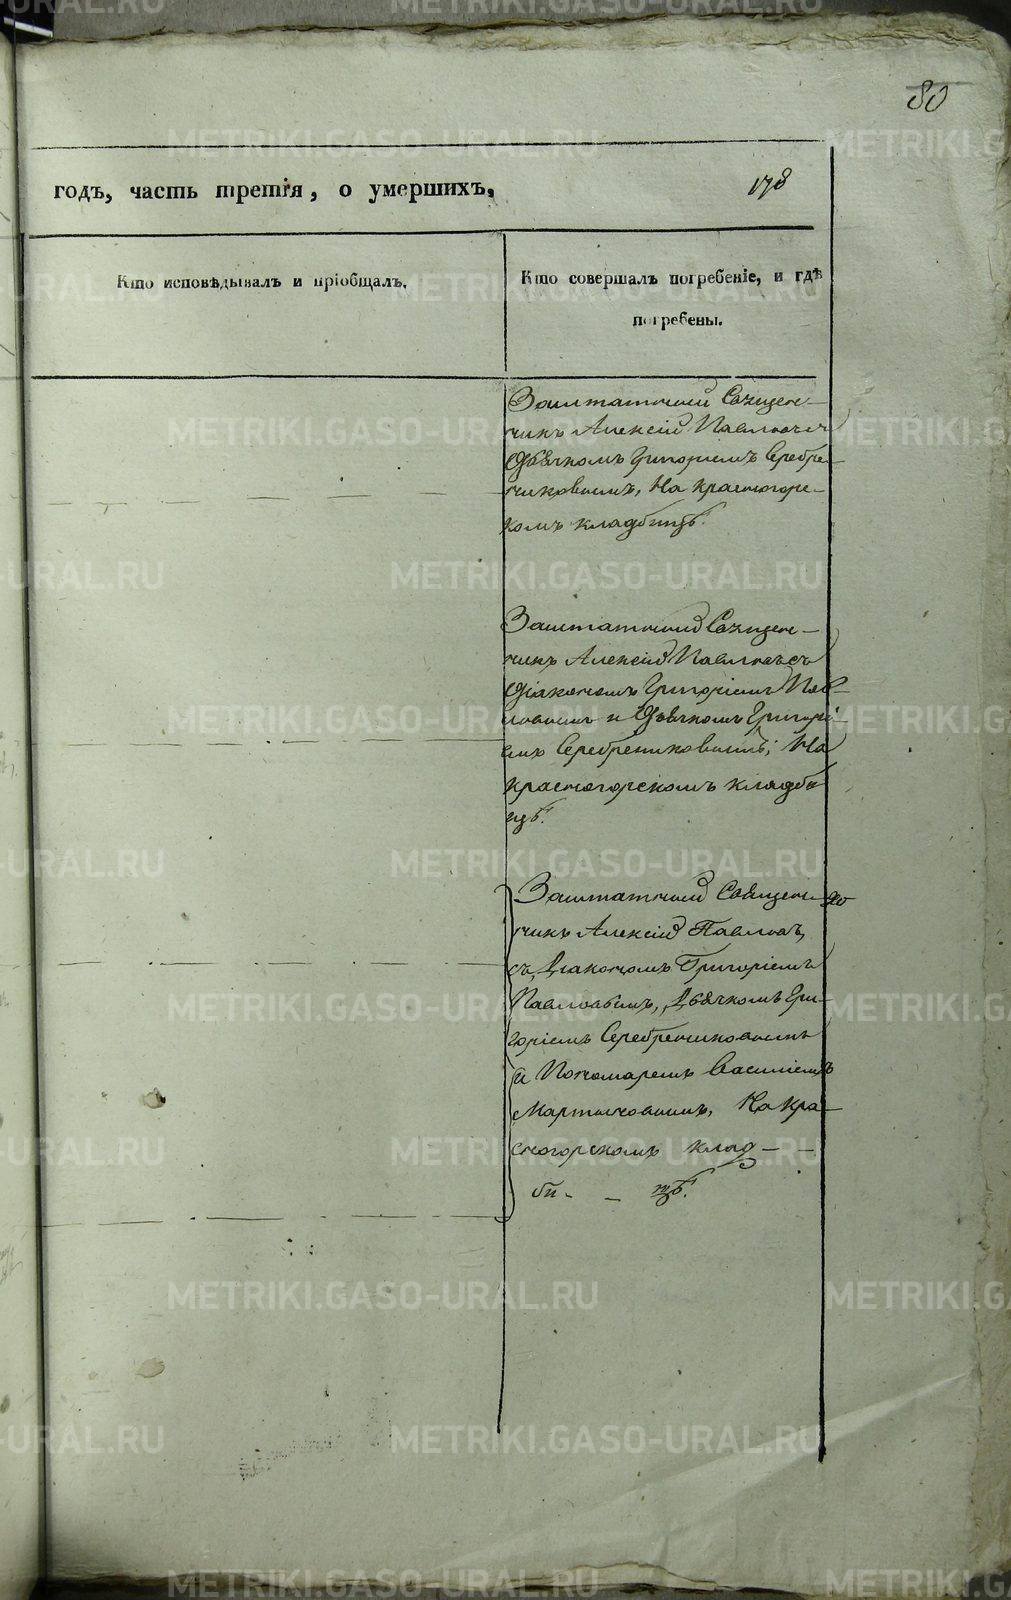 80
годъ, часть третія, о умершихъ,
178
Кто исповѣдывалъ и пріобщалъ.
Кто совершалъ погребеніе, и гдѣ
погребены.
Заштатный Священ-
никъ Алексій Павловъ съ
Дьячкомъ Григоріемъ Серебре-
никовымъ, На Красногорс-
комъ кладбищѣ.
Заштатный Священ-
никъ Алексій Павловъ съ
Діакономъ Григоріемъ Пав-
ловымъ и Дьячкомъ Григорі-
емъ Серебрениковымъ; На
Красногорскомъ кладби
щѣ.
Заштатный Священ-
никъ Алексій Павловъ,
съ Діакономъ Григоріемъ
Павловымъ, Дьячкомъ Гри-
горіемъ Серебрениковымъ
и Пономаремъ Василіемъ
Мартыновымъ, На Кра-
сногорскомъ клад- -
би- - щѣ.
METRIKI.GASO-URAL.RU